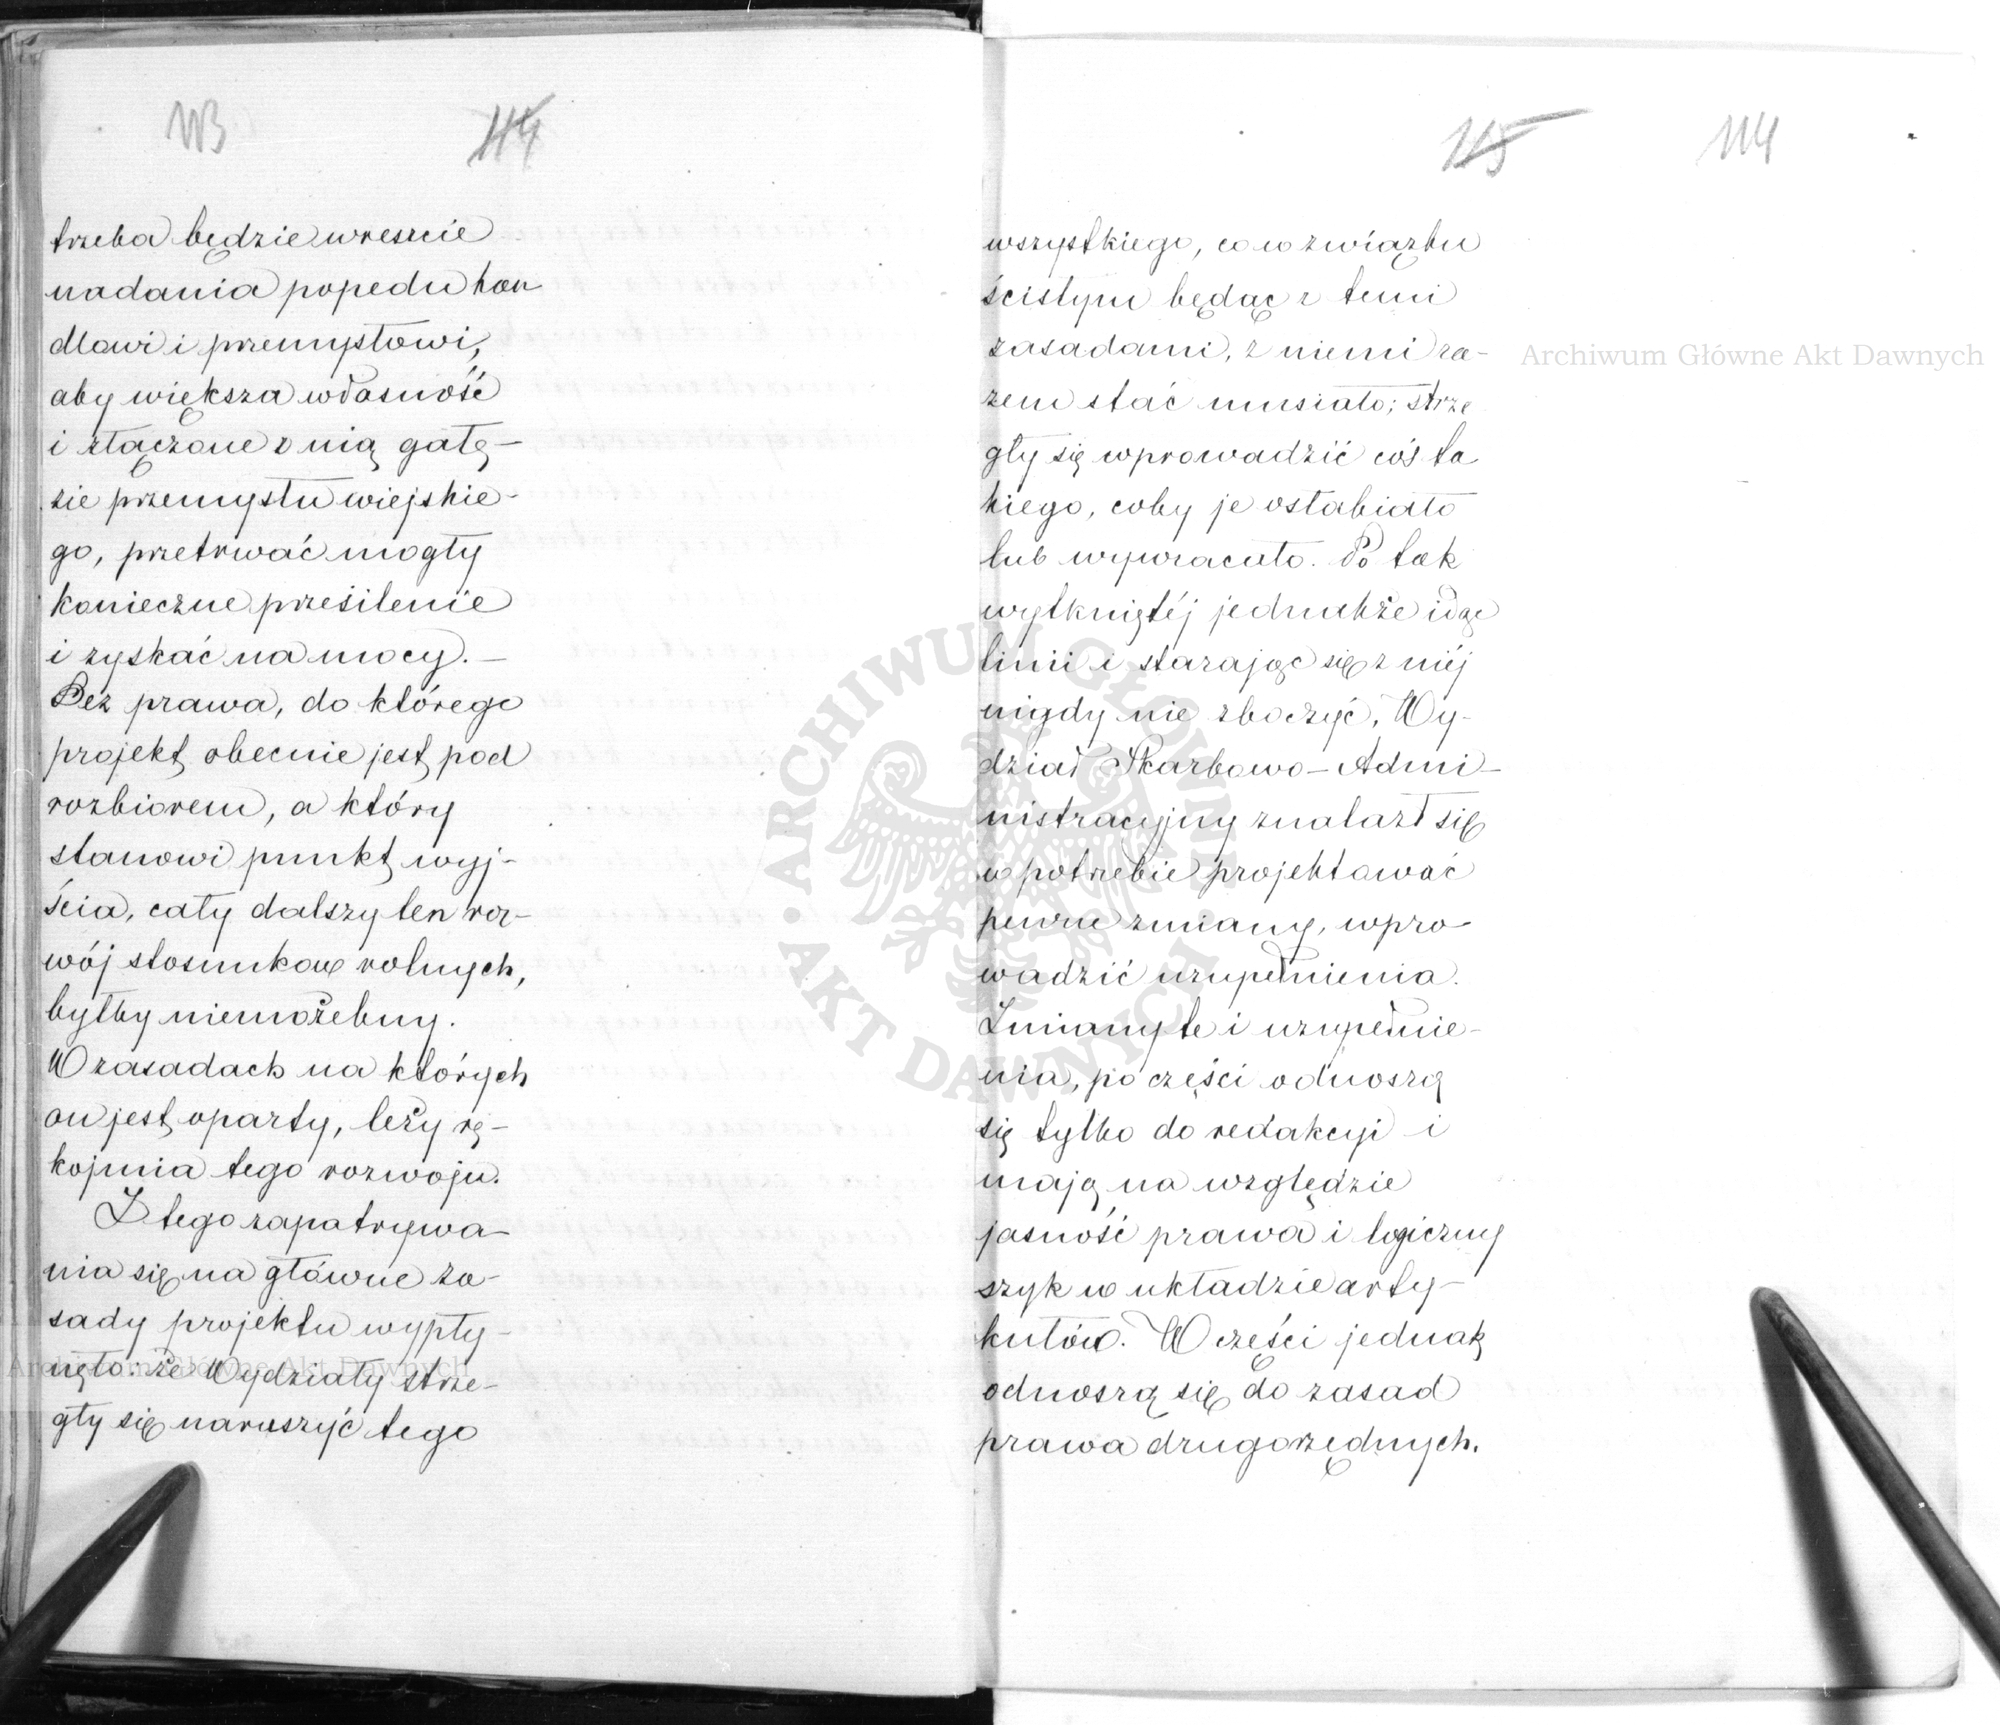 113 114
trzeba będzie wreszcie
nadania popędu han
dlowi i przemysłowi,
aby większa własność
i złączone z nią gałę-
zie przemysłu wiejskie-
go, przetrwać mogły
konieczne przesilenie
i zyskać na mocy. —
Bez prawa, do którego
projekt obecnie jest pod
rozbiorem, a który
stanowi punkt wyj-
ścia, cały dalszy ten roz-
wój stosunków rolnych,
byłby niemożebny.
W zasadach na których
on jest oparty, leży rę-
kojmia tego rozwoju.
Z tego zapatrywa-
nia się na główne za-
sady projektu wypły-
nęło: że Wydziały strze-
gły się naruszyć tego
115 114
wszystkiego, co w związku
ścisłym będąc z temi
zasadami, z niemi ra-
zem stać musiało; strze
gły się wprowadzić coś ta
kiego, coby je osłabiało
lub wywracało. Po tak
wytkniętéj jednakże idąc
linii i starając się z niéj
nigdy nie zboczyć, Wy-
dział Skarbowo-Admi-
nistracyjny znalazł się
w potrzebie projektować
pewne zmiany, wpro-
wadzić uzupełnienia.
Zmiany te i uzupełnie-
nia, po części odnoszą
się tylko do redakcyi i
mają na względzie
jasność prawa i logiczny
szyk w układzie arty-
kułów. W części jednak
odnoszą się do zasad
prawa drugorzędnych.
Archiwum Główne Akt Dawnych
Archiwum Główne Akt Dawnych
ARCHIWUM GŁÓWNE AKT DAWNYCH